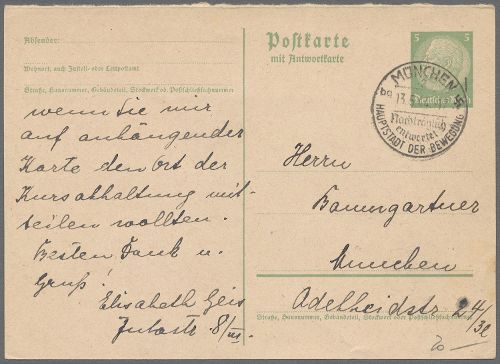 Absender:
Wohnort, auch Zustell- oder Leitpostamt
Straße, Hausnummer, Gebäudeteil, Stockwerk od. Postschließfachnummer
wenn Sie mir
auf anhängender
Karte den Ort der
Kursabhaltung mit-
teilen wollten.
Besten Dank u.
Gruß!
Elisabeth Geis
Jutastr 8/III.
Postkarte
mit Antwortkarte
5 5
Deutsches Reich
MÜNCHEN
bg 13.
Nachträglich
entwertet
HAUPTSTADT DER BEWEGUNG
Herrn
Baumgartner
München
Adelheidstr 24/
Straße, Hausnummer, Gebäudeteil, Stockwerk oder Postschließfachnummer